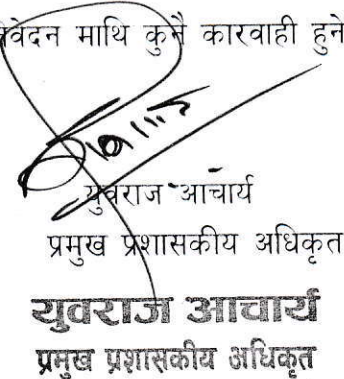 निवेदन माथि कुनै कारवाही हुने
युवराज आचार्य
प्रमुख प्रशासकीय अधिकृत
युवराज आचार्य
प्रमुख प्रशासकीय अधिकृत